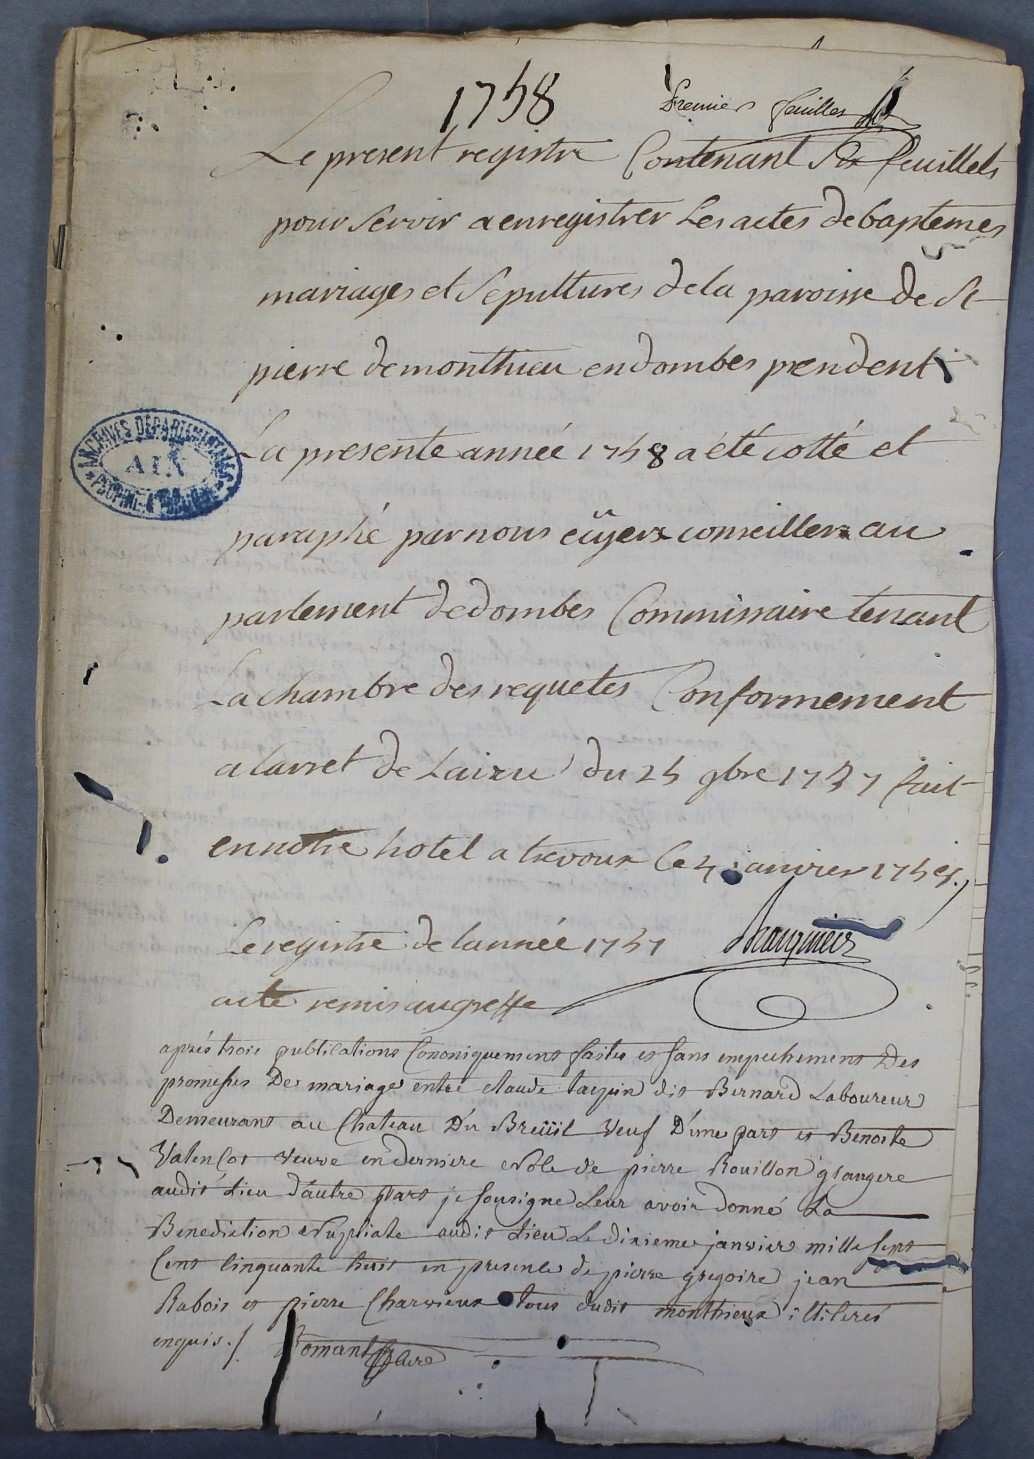 1758
Premier feuillet
Le present registre Contenant six feuillets
pour servir a enregistrer Les actes de baptemes
mariages et sepultures de la paroisse de St
pierre de monthieu en dombes pendent
La presente année 1758 a été cotté et
paraphé par nous ecüyer conseiller au
parlement de dombes Commissaire tenant
La chambre des requetes Conformement
a larret de du 25 9bre 1737 fait
en notre hotel a trevoux le 4 janvier 1758./
Le registre de lannée 1757
acte remis au greffe
après trois publications Cononiquement faites et sans empechement Des
promesses De mariage entre claude dit Bernard Laboureur
Demeurant au Chateau Du Breüil veuf D'une part et Benoite
Valençot veuve en derniere Nôle de pierre Rouillon
audit Lieu d'autre part je sousigne Leur avoir donné La
Benediction Nuptiale audit Lieu Le dixieme janvier mille sept
Cent Cinquante huit en presence de pierre gregoire jean
Rabois et pierre Charvieux tous dudit monthieux illiteres
enquis./ Romant
ARCHIVES DÉPARTEMENTALES
AIN